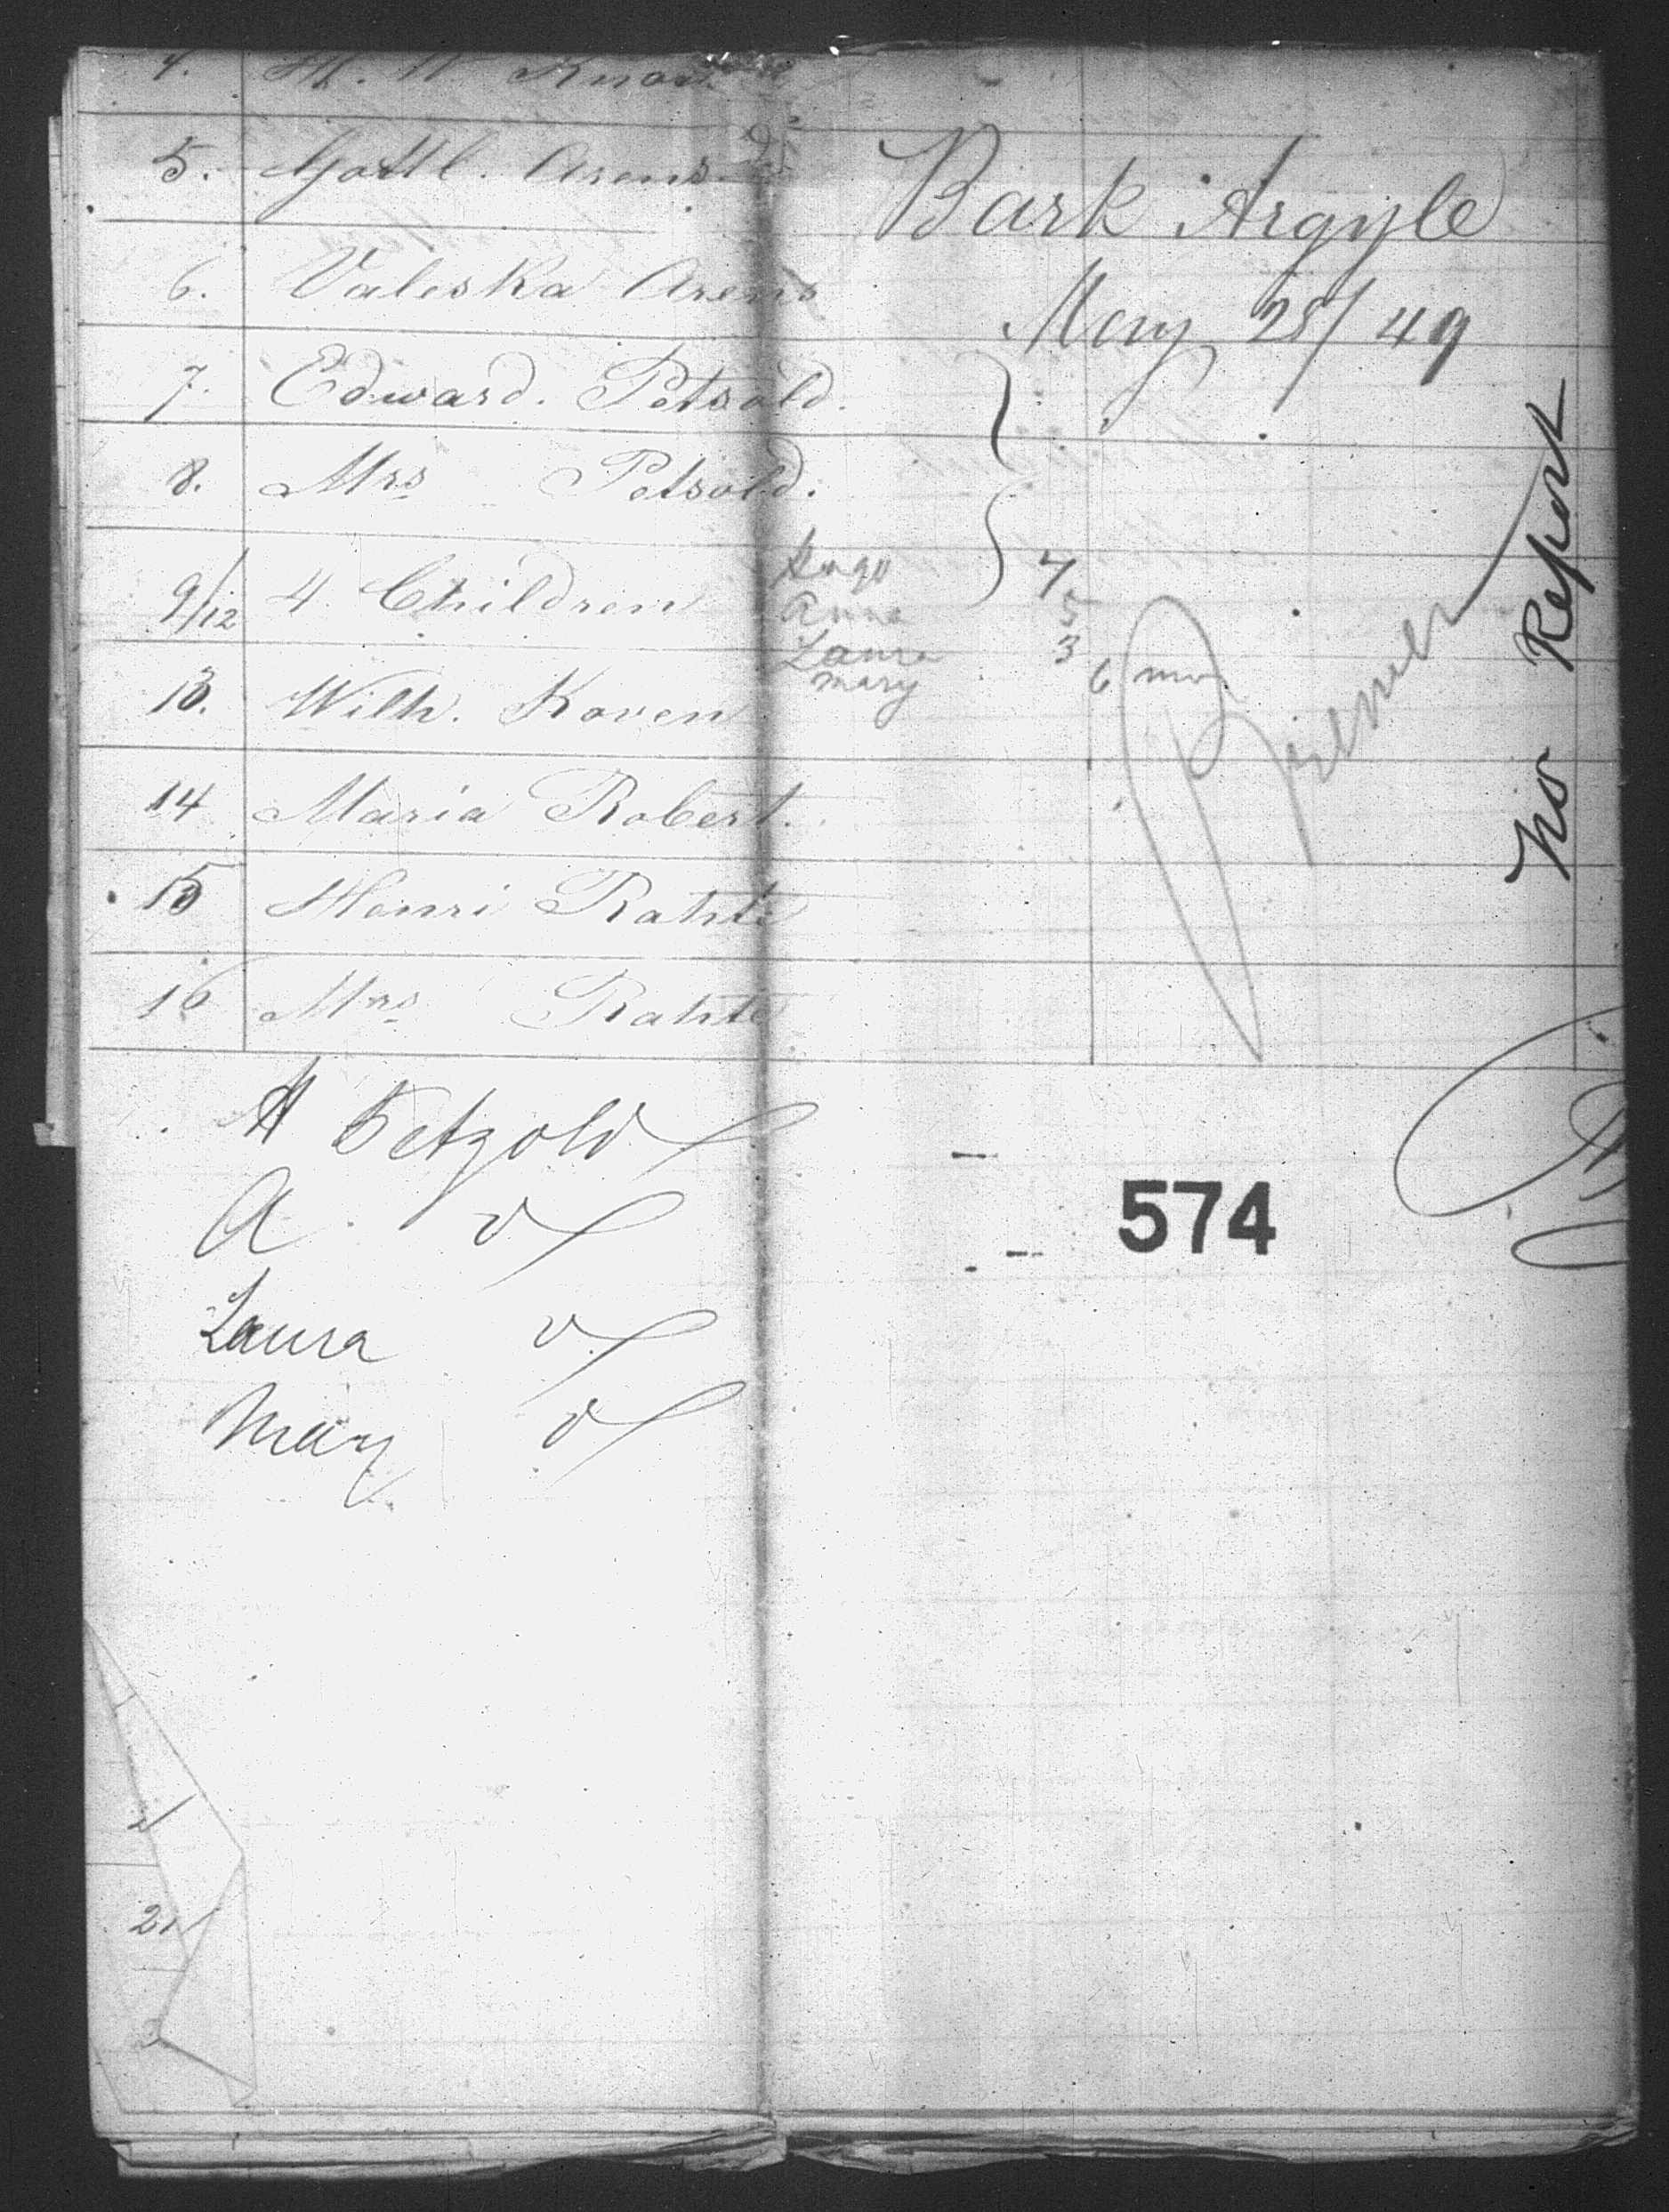 4. H. W.
5. Gottl. Arens
6. Valeska Arens
7. Edward. Petsold.
8. Mrs Petsold.
9/12 4 Children
Hugo 7
Anna 5
Laura 3
Mary 6 mo
13. Wilh. Koven
14 Maria Robert.
15 Henri Rahte
16 Mrs Rahte
H Petzold
A do
Laura do
Mary do
Bark Argyle
May 28/49
Bremen
No Report
574
2
21
3